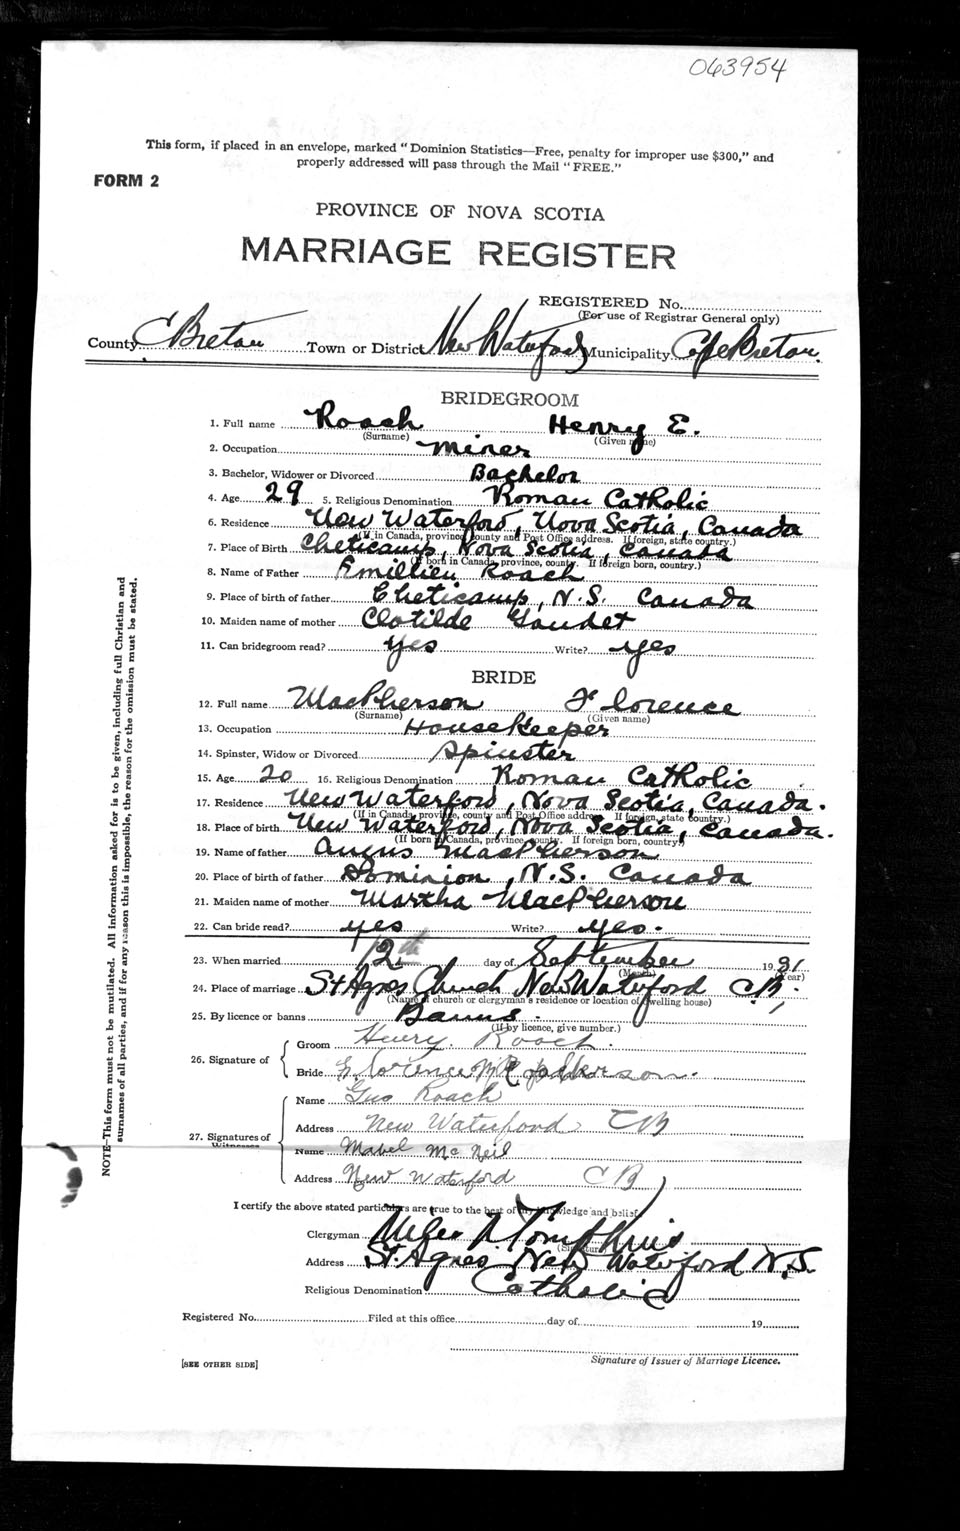 063954
This form, if placed in an envelope, marked "Dominion Statistics—Free, penalty for improper use $300," and
properly addressed will pass through the Mail "FREE."
FORM 2
PROVINCE OF NOVA SCOTIA
MARRIAGE REGISTER
REGISTERED No.
(For use of Registrar General only)
County C Breton Town or District New Waterford Municipality Cape Breton.
BRIDEGROOM
1. Full name Roach Henry E.
(Surname) (Given name)
2. Occupation miner
3. Bachelor, Widower or Divorced Bachelor
4. Age 29 5. Religious Denomination Roman Catholic
6. Residence New Waterford, Nova Scotia, Canada
(If in Canada, province, county and Post Office address. If foreign, state country.)
7. Place of Birth Cheticamp, Nova Scotia, Canada
(If born in Canada, province, county. If foreign born, country.)
8. Name of Father Emillien Roach
9. Place of birth of father Cheticamp, N.S. Canada
10. Maiden name of mother Clotilde Gaudet
11. Can bridegroom read? yes Write? yes
BRIDE
12. Full name MacPherson Florence
(Surname) (Given name)
13. Occupation HouseKeeper
14. Spinster, Widow or Divorced Spinster
15. Age 20 16. Religious Denomination Roman Catholic
17. Residence New Waterford, Nova Scotia, Canada.
(If in Canada, province, county and Post Office address. If foreign, state country.)
18. Place of birth New Waterford, Nova Scotia, Canada.
(If born in Canada, province, county. If foreign born, country.)
19. Name of father Angus MacPherson
20. Place of birth of father Dominion, N.S. Canada
21. Maiden name of mother Martha MacPherson
22. Can bride read? yes Write? yes.
23. When married 12th day of September 1931
(Month) (Year)
24. Place of marriage St Agnes Church New Waterford C.B.
(Name of church or clergyman's residence or location of dwelling house)
25. By licence or banns Banns.
(If by licence, give number.)
26. Signature of
Groom Henry. Roach.
Bride Florence
27. Signatures of
Witnesses
Name Gus Roach
Address New Waterford CB
Name Mabel Mc Neil
Address New Waterford CB
I certify the above stated particulars are true to the best of my knowledge and belief.
Clergyman Tompkins
(Signature)
Address St. Agnes New Waterford N.S.
Religious Denomination Catholic
Registered No. Filed at this office day of 19
Signature of Issuer of Marriage Licence.
[SEE OTHER SIDE]
NOTE—This form must not be mutilated. All information asked for is to be given, including full Christian and
surnames of all parties, and if for any reason this is impossible, the reason for the omission must be stated.